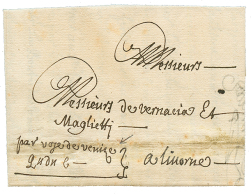 Messieurs
Messieurs de vernacia Et
Maglietti
par voye de venice
a livorne